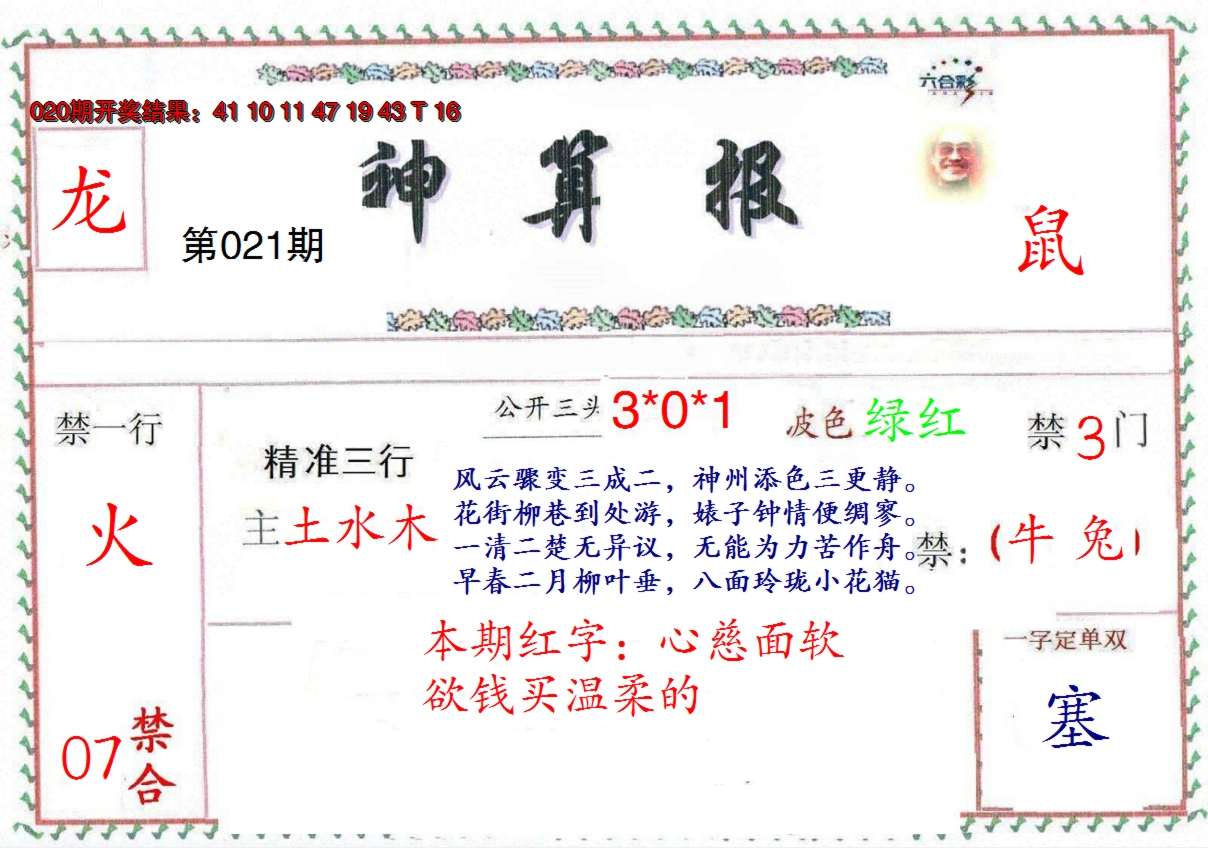 六合彩
020期开奖结果：41 10 11 47 19 43 T 16
龙
神算报
第021期
鼠
禁一行
火
07
禁合
精准三行
主土水木
公开三头
3*0*1
波色 绿红
禁3门
风云骤变三成二，神州添色三更静。
花街柳巷到处游，婊子钟情便绸寥。
一清二楚无异议，无能为力苦作舟。
早春二月柳叶垂，八面玲珑小花猫。
禁：（牛 兔）
本期红字：心慈面软
欲钱买温柔的
一字定单双
塞